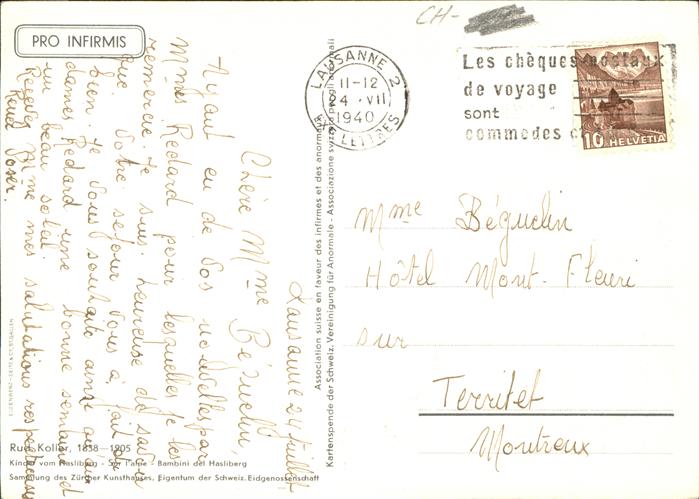 CH-
PRO INFIRMIS
LAUSANNE 2
11-12
4 · VII
1940
EXP. LETTRES
Les chèques postaux
de voyage
sont
commodes
10 HELVETIA
Lausanne 24 juillet
Chère Mme Béguelin,
Ayant eu de vos nouvelles par
Mmes Redard pour lesquelles je les
remercie. Je suis heureuse de savoir
que votre séjour vous a fait du
bien. Je vous souhaite ainsi qu'aux
dames Redard une bonne semaine et
un beau soleil.
Recevez Mme mes salutations respectueuses
Mme Béguelin
Hôtel Mont-Fleuri
sur
Territet
Montreux
Association suisse en faveur des infirmes et des anormaux · Associazione svizzera pro gli anormali
Kartenspende der Schweiz. Vereinigung für Anormale
Rud. Koller, 1838—1905
Kinder vom Hasliberg - Sur l'alpe - Bambini del Hasliberg
Sammlung des Zürcher Kunsthauses, Eigentum der Schweiz. Eidgenossenschaft